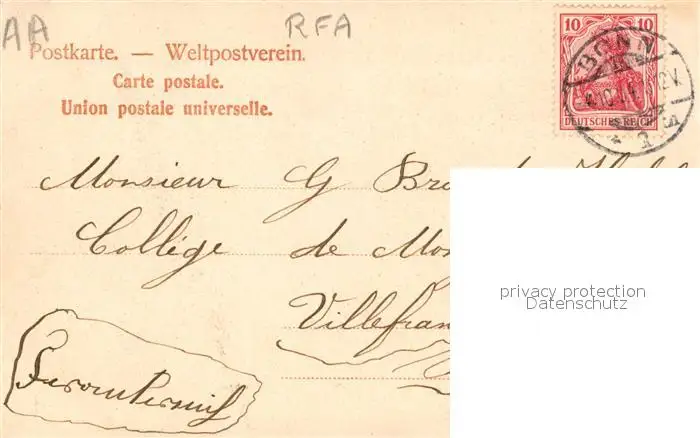 AA RFA
Postkarte. — Weltpostverein.
Carte postale.
Union postale universelle.
10 10
DEUTSCHES REICH
BONN
Monsieur G Bro
Collège de Mo
Villefran
privacy protection
Datenschutz